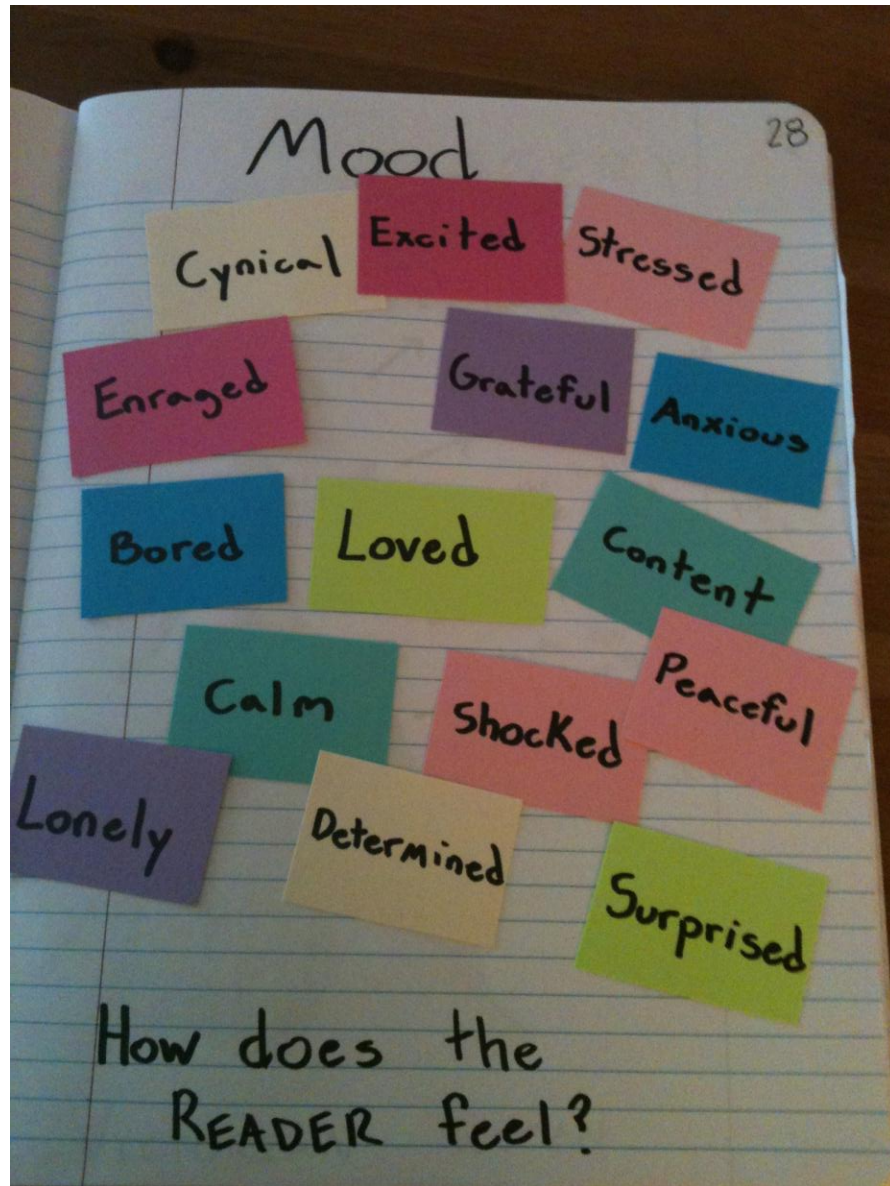 28
Mood
Cynical
Excited
Stressed
Enraged
Grateful
Anxious
Bored
Loved
Content
Calm
Shocked
Peaceful
Lonely
Determined
Surprised
How does the
READER feel?